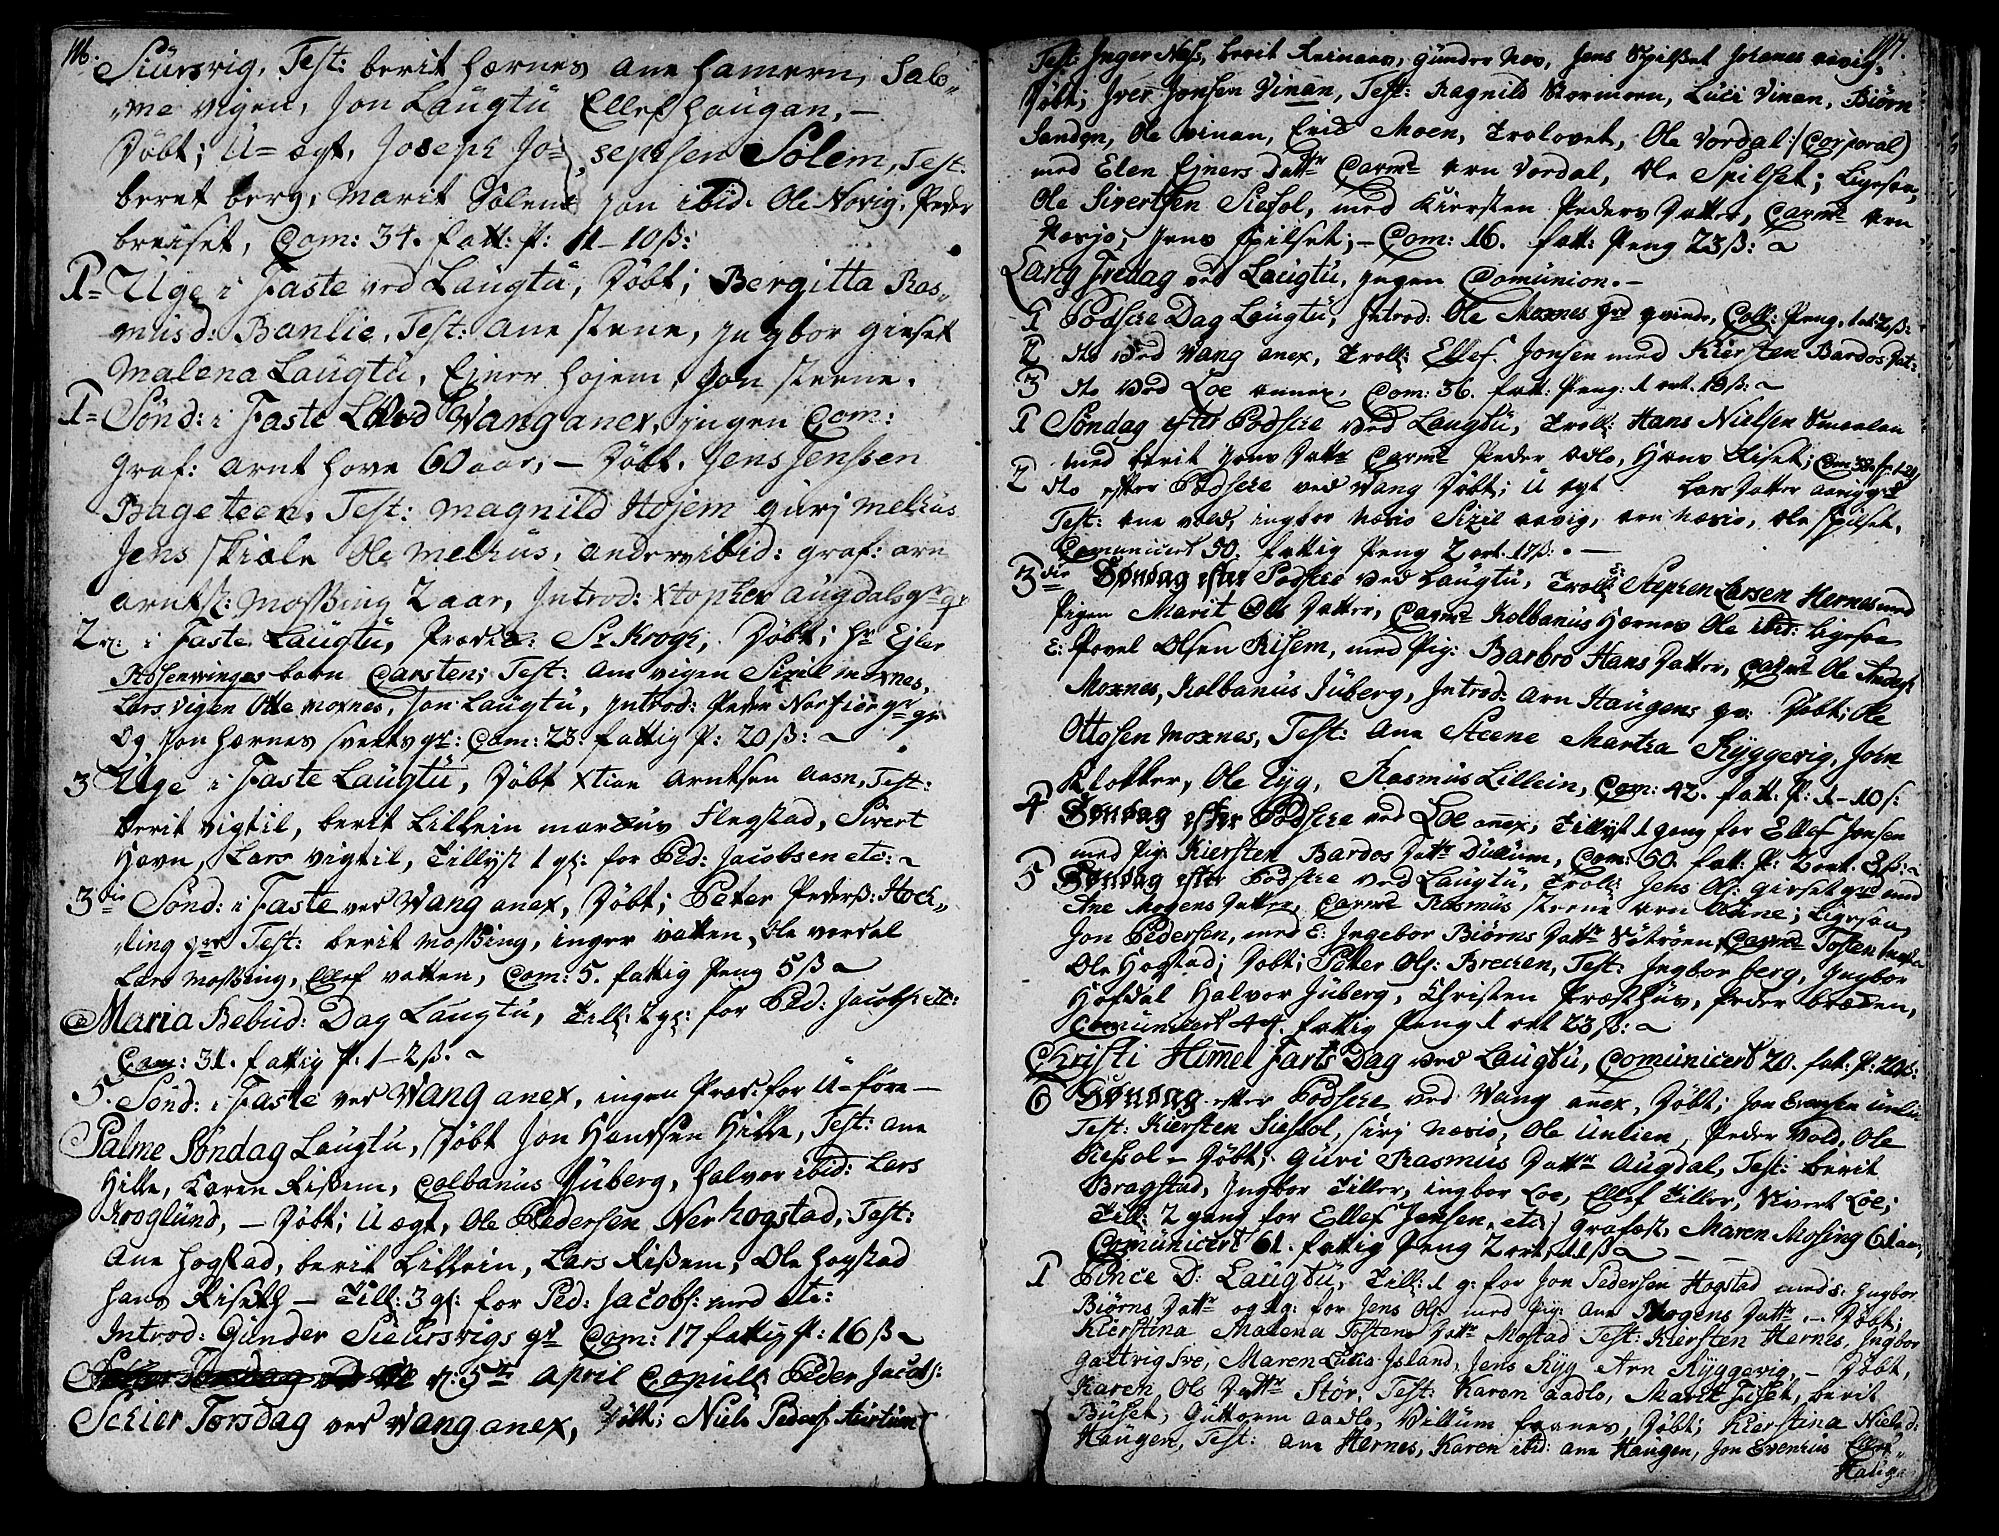 116.
Siursvig, Test: berit hernes ane hamern, Salo,,
me vigen, Jon Laugtu Ellef haugan, —
Døbt; U= ægt, Joseph Jo= sephsen Solem, Test:
beret berg, marit Solem jon ibid. Ole Novig. Peder
breiset, Com: 34. fatt: P: 1–10ß:
1= Uge i Faste ved Laugtu, Døbt; Bergitta Ras,,
musd: Banlie, Test: ane stene, Ingbor gieset
Malena Laugtu, Ejner hojem, Jon steene.
1= Sønd: i Faste ved Wang anex, ingen Com:
Graf: arnt hove 60 aar, — Døbt. Jens Jenssen
Bageteen, Test: magnild Hojem gurj melhus
Jens skiele Ole melhus, anders ibid: graf: arn
arntß: Mossing 2 aar, Introd: Xtopher augdals
2 i Faste Laugtu, Præd: Sr Krogh, Døbt; Hr Ejler
Rosenvinges barn Carsten; Test: am vigen Sizil moxnes,
Lars vigen Otte moxnes, Jon Laugtu, Introd: Peder Norfier
Og Jon hernes Com: 23: fattig P: 20ß:
3 Uge i Faste Laugtu, Døbt Xtian Arntsen Aasn, Test:
berit vigtil, berit Lillein marcus Flegstad, Sivert
Havn, Lars vigtil, Tillyst 1 g: for Ped: Jacobsen etc:
3die Sønd: i Faste ved Wang anex, Døbt; Peter Pederß: Hoch,,
ling Test: berit mossing, inger vatten, Ole verdal
Lars mossing, Ellef vatten, Com: 5. fattig Peng 5ß
Maria Bebud: Dag Laugtu, Till: 2 g: for Ped: Jacobs: etc:
Com: 31. fattig P: 1–2ß.
5. Sønd: i Faste ved Wang anex, ingen Præd: for U=føre—
Palme Søndag Laugtu, Døbt Jon Handsen Hille, Test: ane
Hille, Karen Rissem, Colbanus Juberg, halvor ibid: Lars
Kroglund, — Døbt; U ægt, Ole Pedersen Nerhogstad, Test:
Ane hogstad, berit Lillein, Lars Rissem, Ole hogstad
hans Riseth — Till: 3 g: for Ped: Jacobs: med etc:
Introd: Gunder Siursvigs Com: 17 fattig P: 16ß
d: 5te April Copul: Peder Jacobs:
Schier Torsdag ved Wang anex, Døbt: Niels Peders:
117.
Test: Inger Næs, berit Reinaas, gunder Nov, Jens Spilset Johanes
Døbt; Iver Jonsen Vinan, Test: Ragnild Stormoen, Luci Vinan, Biørn
Sanden, Ole vinan, Erik Moen, Trolovet, Ole Vordal /: Corporal)
med Elen Ejners Dattr Cavrd arn Vordal, Ole Spilset; Ligesaa,
Ole Sivertsen Siesol, med Kiersten Peders Datter, Cavrd Arn
Næsjo, Jens Spilset; — Com: 16. fatt: Peng 23ß:
Lang Fredag ved Laugtu, ingen Comunion. —
1 Podsche Dag Laugtu, Introd: Ole Moxnes qvinde, Coll: Peng,
2 dto ved Wang anex, Troll: Ellef Jonsen med Kiersten Bardos
3 dto ved Loe annex, Com: 36. fatt: Peng: 1 ort. 18ß:
1 Søndag efter Podsche ved Laugtu, Troll: Hans Nielsen
med berit Jens Dattr Cavrd Peder adlo, Hans Riset;
2 dto efter Podsche ved Wang Døbt; U ægt Lars Datter
Test: ane vold, ingbor Næsio Sizil aavig, arn Næsio, Ole Spilset,
Comunicert 50. fattig Peng 2 ort. 17ß. —
3die Søndag efter Podsche ved Laugtu, Troll: Stephen Larsen Hernes med
Pigen Marit Ols Datter, Cavrd Kolbanus Hernes Ole ibid: Ligesaa
E: Povel Olsen Risem, med Pig: Barbro Hans Datter, Cavrd Ole
Moxnes, Kolbanus Juberg, Introd: Arn Haugens qv. Døbt; Ole
Ottosen Moxnes, Test: Ane Steene Martha Ryggevig, John
Klokker, Ole Ryg, Rasmus Lillein, Com: 42. fatt: P: 1–10ß:
4 Søndag efter Podsche ved Loe anex, Tillyst 1 gang for Ellef Jonsen
med Pig: Kiersten Bardos Dattr Com: 50. fatt: P: 2 ort. 8ß:
5 Søndag efter Podsche ved Laugtu, Troll: Jens Ols: gieset med
Ane Mogens Datter, Cavrd Rasmus steene arn Steene; Ligesaa,
Jon Pedersen, med E: Ingebor Biørns Dattr Cavrd Tosten
Ole Hogstad; Døbt; Peter Ols: Brecken, Test: Ingbor berg, Ingbor
Hofdal Halvor Juberg, Christen Præsthus, Peder brecken,
Comunicert 44. fattig Peng 1 ort 23ß:
Christi Himmel Farts Dag ved Laugtu, Comunicert 20. fatt: P: 20ß:
6 Søndag efter Podsche ved Wang anex, Døbt; Jon Evensen Unlien
Test: Kiersten Siessol, sirj Næsio, Ole Unlien, Peder Vold, Ole
Ressol — Døbt; Guri Rasmus Dattr Augdal, Test: berit
Bragstad, Ingbor Tiller, ingbor Loe, Ellef Tiller, Sivert Loe;
Till: 2 gang for Ellef Jensen, etc:/ grafæst, Maren Mosing 61 aar,
Comunicert 61. fattig Peng 2 ort
1 Pince D: Laugtu, Till: 1 g: for Jon Pedersen Hogstad med: Ingbor
Biørns Dattr og 1 g: for Jens Ols: med Pig: Ane Mogens Dattr — Døbt;
Kierstina Malena Tostens Dattr Mostad Test: Kiersten Hernes, Ingbor
Maren Lucia Island, Jens Ryg Arn Ryggevig, — Døbt,
Karen Ols Dattr Stør, Test: Karen aadlo, Marit Giset, berit
Buset, Guttorm aadlo, Villum faanes, Døbt; Kierstina Nielsd:
Haugen, Test: Ane Hernes, Karen ibid: ane Haugen, Jon Evenhus Ellef
Hauga